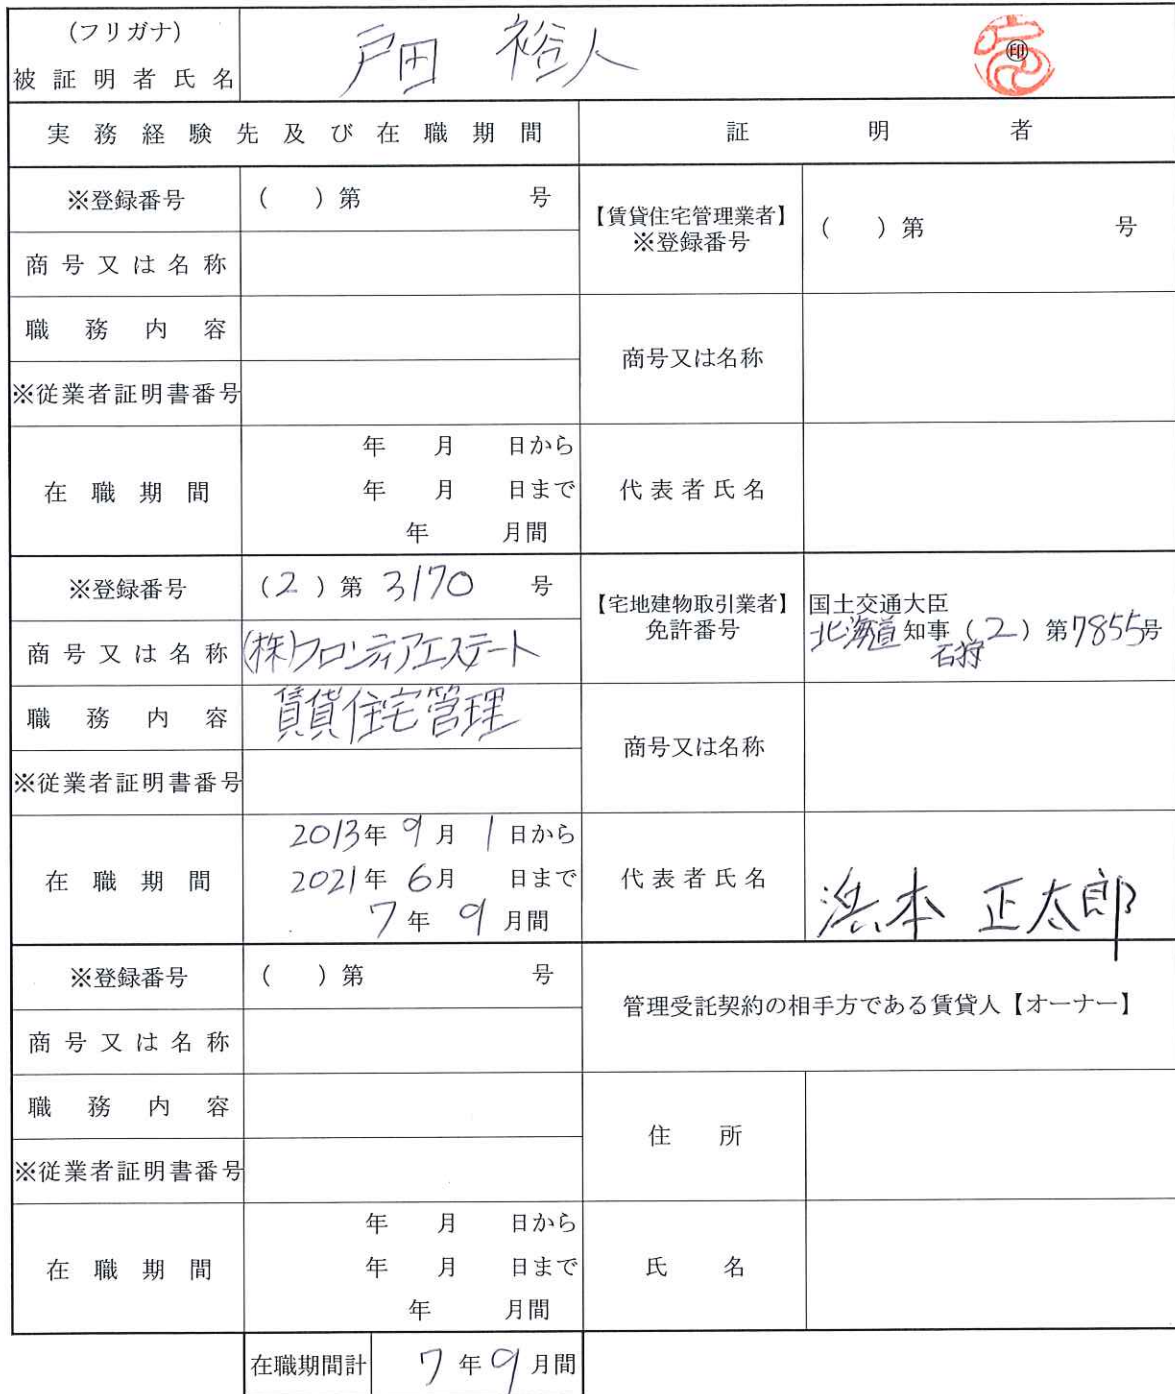 (フリガナ)
被証明者氏名
戸田 裕人
印
実務経験先及び在職期間
証明者
※登録番号
( )第 号
商号又は名称
職務内容
※従業者証明書番号
在職期間
年 月 日から
年 月 日まで
年 月間
【賃貸住宅管理業者】
※登録番号
( )第 号
商号又は名称
代表者氏名
※登録番号
(2)第 3170 号
商号又は名称
(株)フロンティアエステート
職務内容
賃貸住宅管理
※従業者証明書番号
在職期間
2013年 9月 1日から
2021年 6月 日まで
7年 9月間
【宅地建物取引業者】
免許番号
国土交通大臣
北海道 知事 (2) 第7855号
石狩
商号又は名称
代表者氏名
浜本 正太郎
※登録番号
( )第 号
商号又は名称
職務内容
※従業者証明書番号
在職期間
年 月 日から
年 月 日まで
年 月間
管理受託契約の相手方である賃貸人【オーナー】
住所
氏名
在職期間計
7年9月間